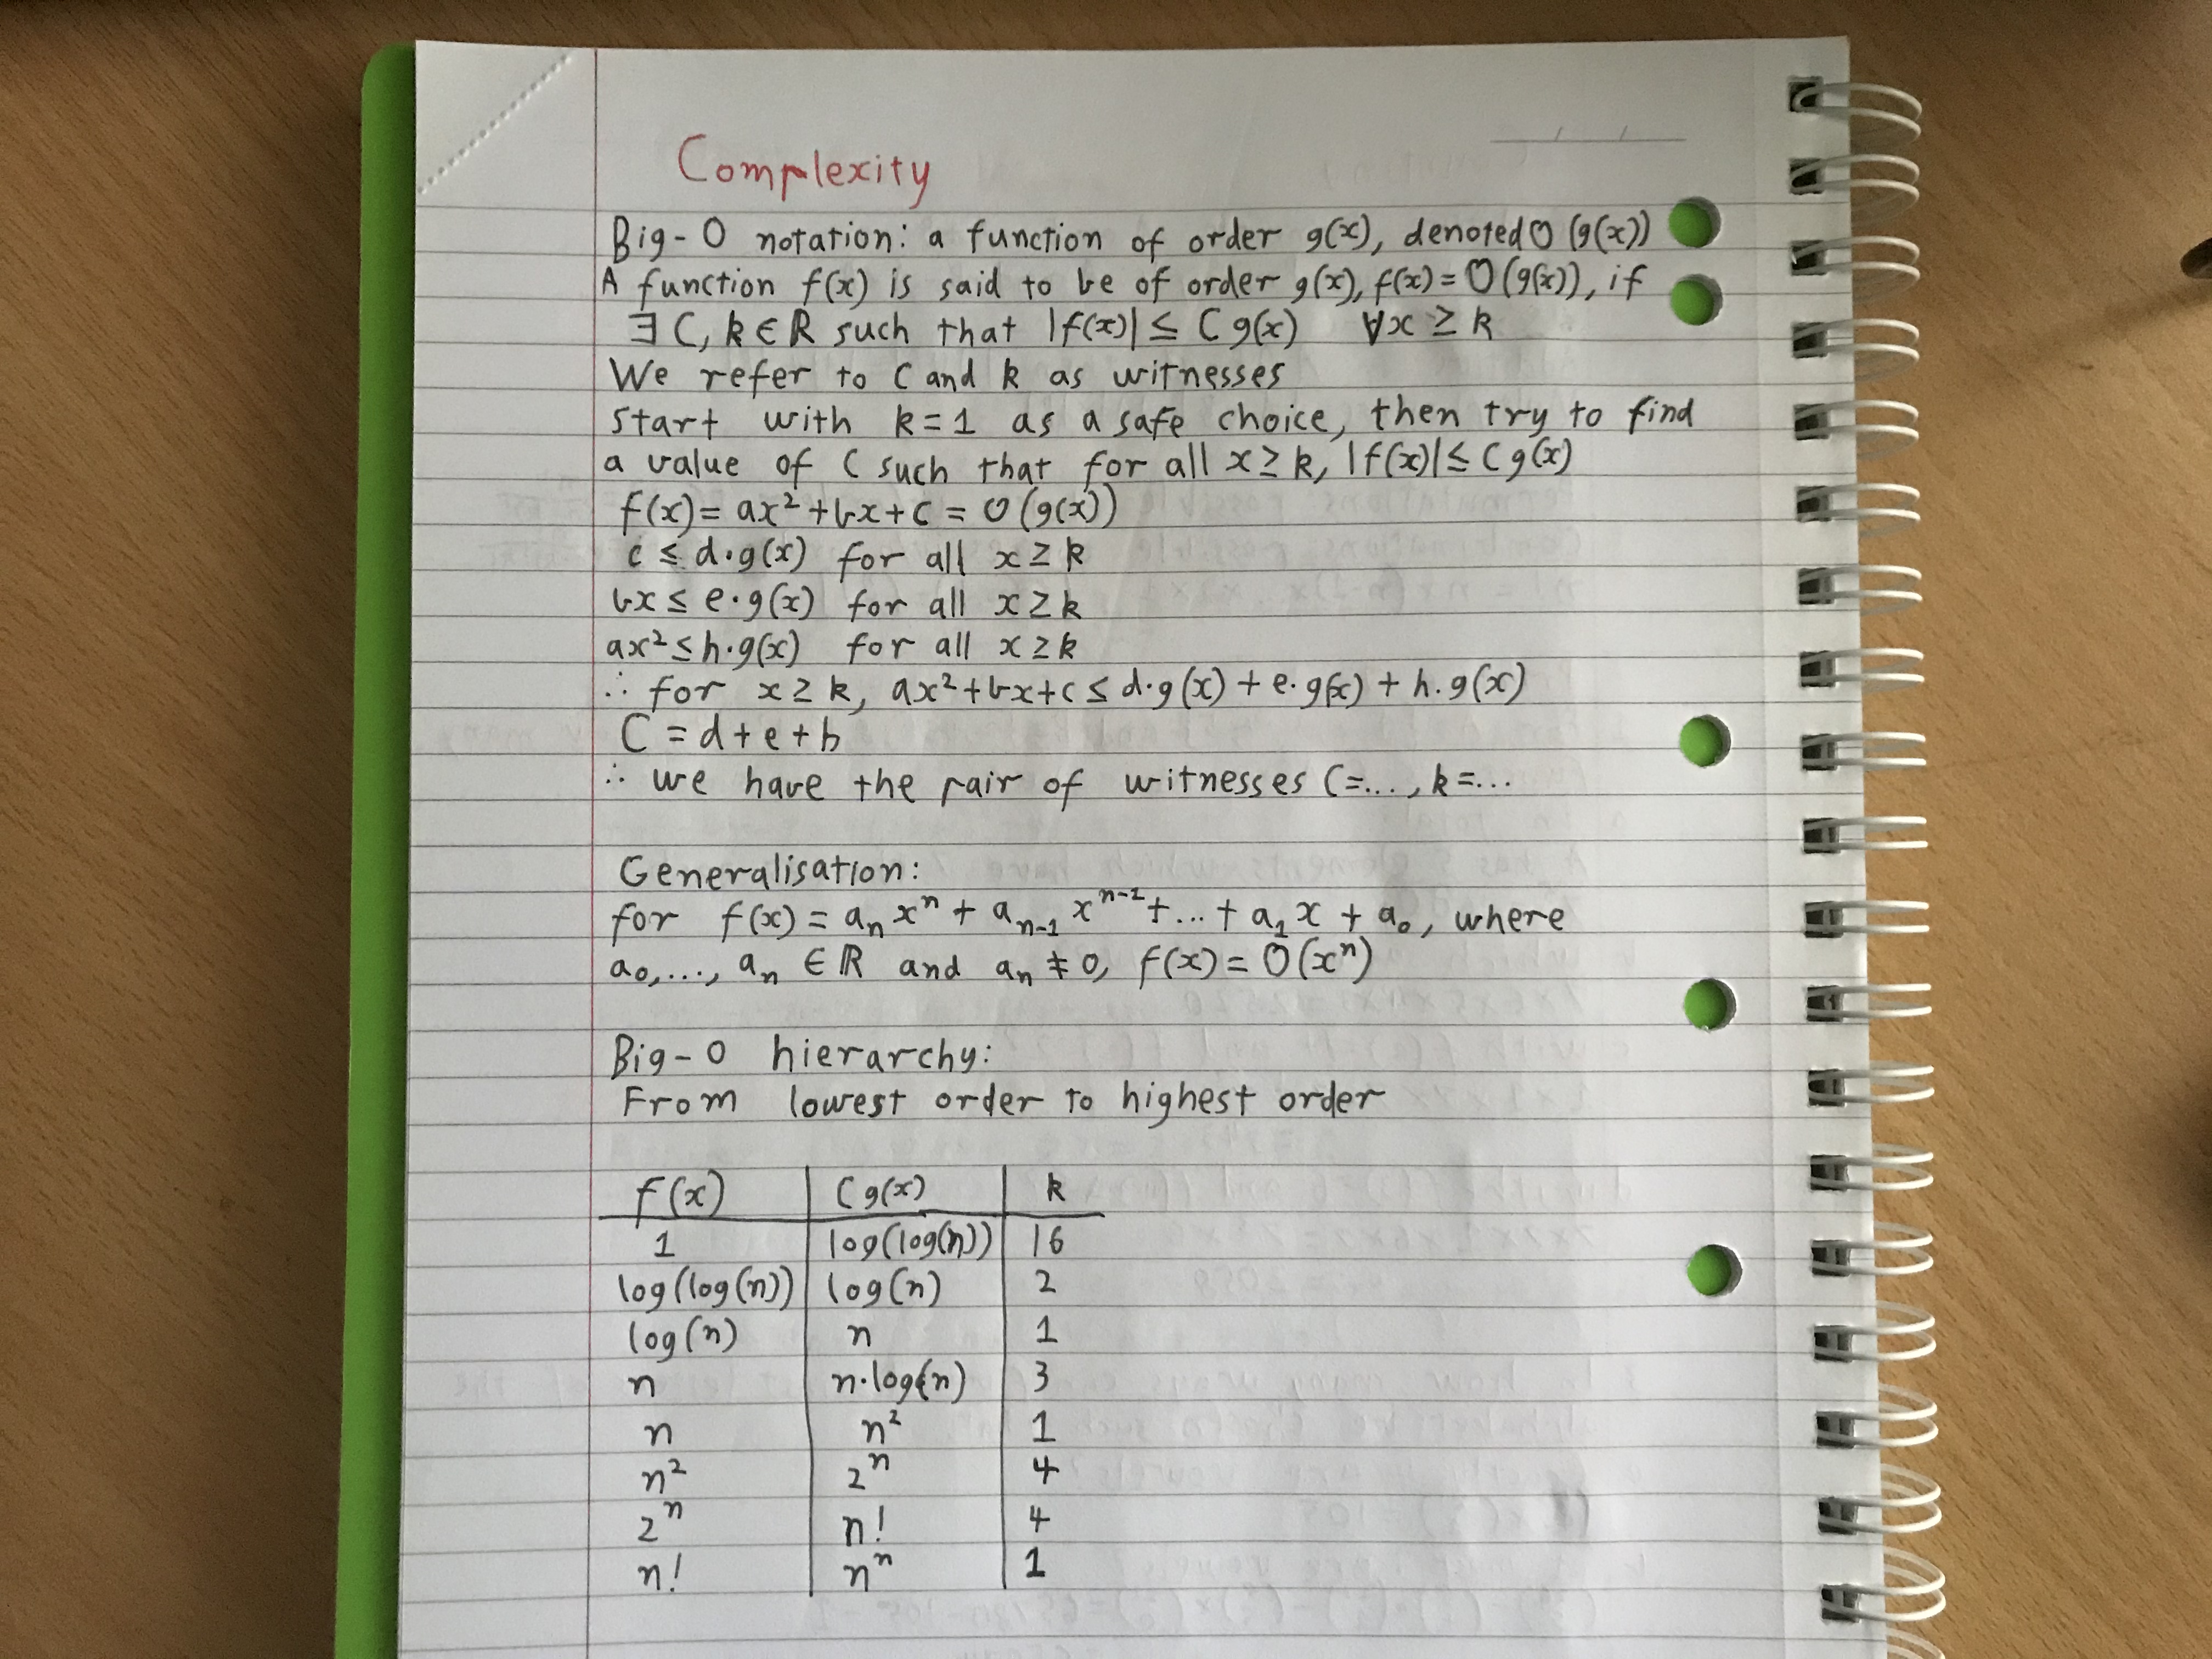 Complexity
Big-O notation: a function of order g(x), denoted O(g(x))
A function f(x) is said to be of order g(x), f(x) = O(g(x)), if
∃ C, k ∈ ℝ such that |f(x)| ≤ C g(x) ∀x ≥ k
We refer to C and k as witnesses
start with k = 1 as a safe choice, then try to find
a value of C such that for all x ≥ k, |f(x)| ≤ C g(x)
f(x) = ax² + bx + c = O(g(x))
c ≤ d·g(x) for all x ≥ k
bx ≤ e·g(x) for all x ≥ k
ax² ≤ h·g(x) for all x ≥ k
∴ for x ≥ k, ax² + bx + c ≤ d·g(x) + e·g(x) + h·g(x)
C = d + e + h
∴ we have the pair of witnesses C = ..., k = ...
Generalisation:
for f(x) = aₙxⁿ + aₙ₋₁xⁿ⁻¹ + ... + a₁x + a₀, where
a₀, ..., aₙ ∈ ℝ and aₙ ≠ 0, f(x) = O(xⁿ)
Big-O hierarchy:
From lowest order to highest order
f(x) C g(x) k
1 log(log(n)) 16
log(log(n)) log(n) 2
log(n) n 1
n n·log(n) 3
n n² 1
n² 2ⁿ 4
2ⁿ n! 4
n! nⁿ 1